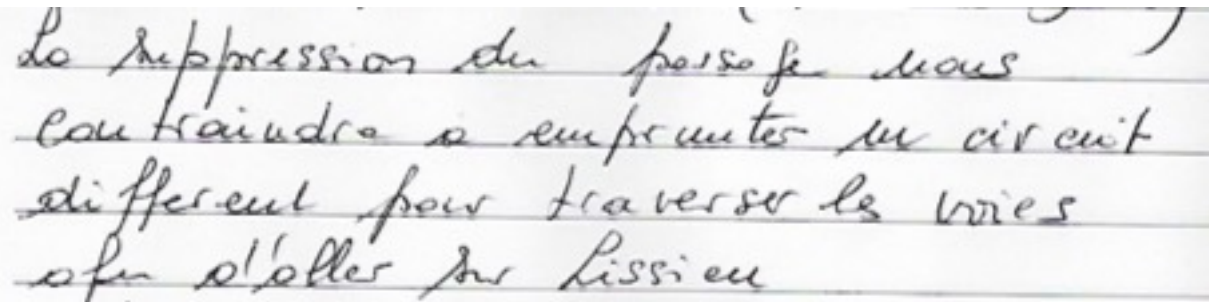 La suppression du passage nous
contraindra a emprunter un circuit
different pour traverser les voies
afin d'aller sur Lissieu